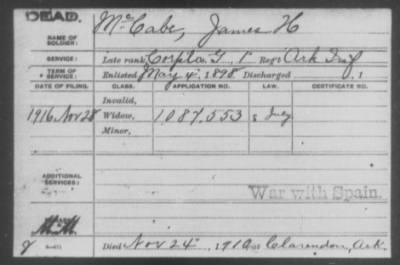 DEAD.
NAME OF SOLDIER: McCabe, James H
SERVICE: Late rank, Corpl Co. G, 1 Reg't Ark Inf
TERM OF SERVICE: Enlisted May 4, 1898 Discharged , 1
DATE OF FILING. CLASS. APPLICATION NO. LAW. CERTIFICATE NO.
Invalid,
1916, Nov 28 Widow, 1,087,553
Minor,
ADDITIONAL SERVICES:
War with Spain.
Died Nov 24, 1916 at Clarendon, Ark.